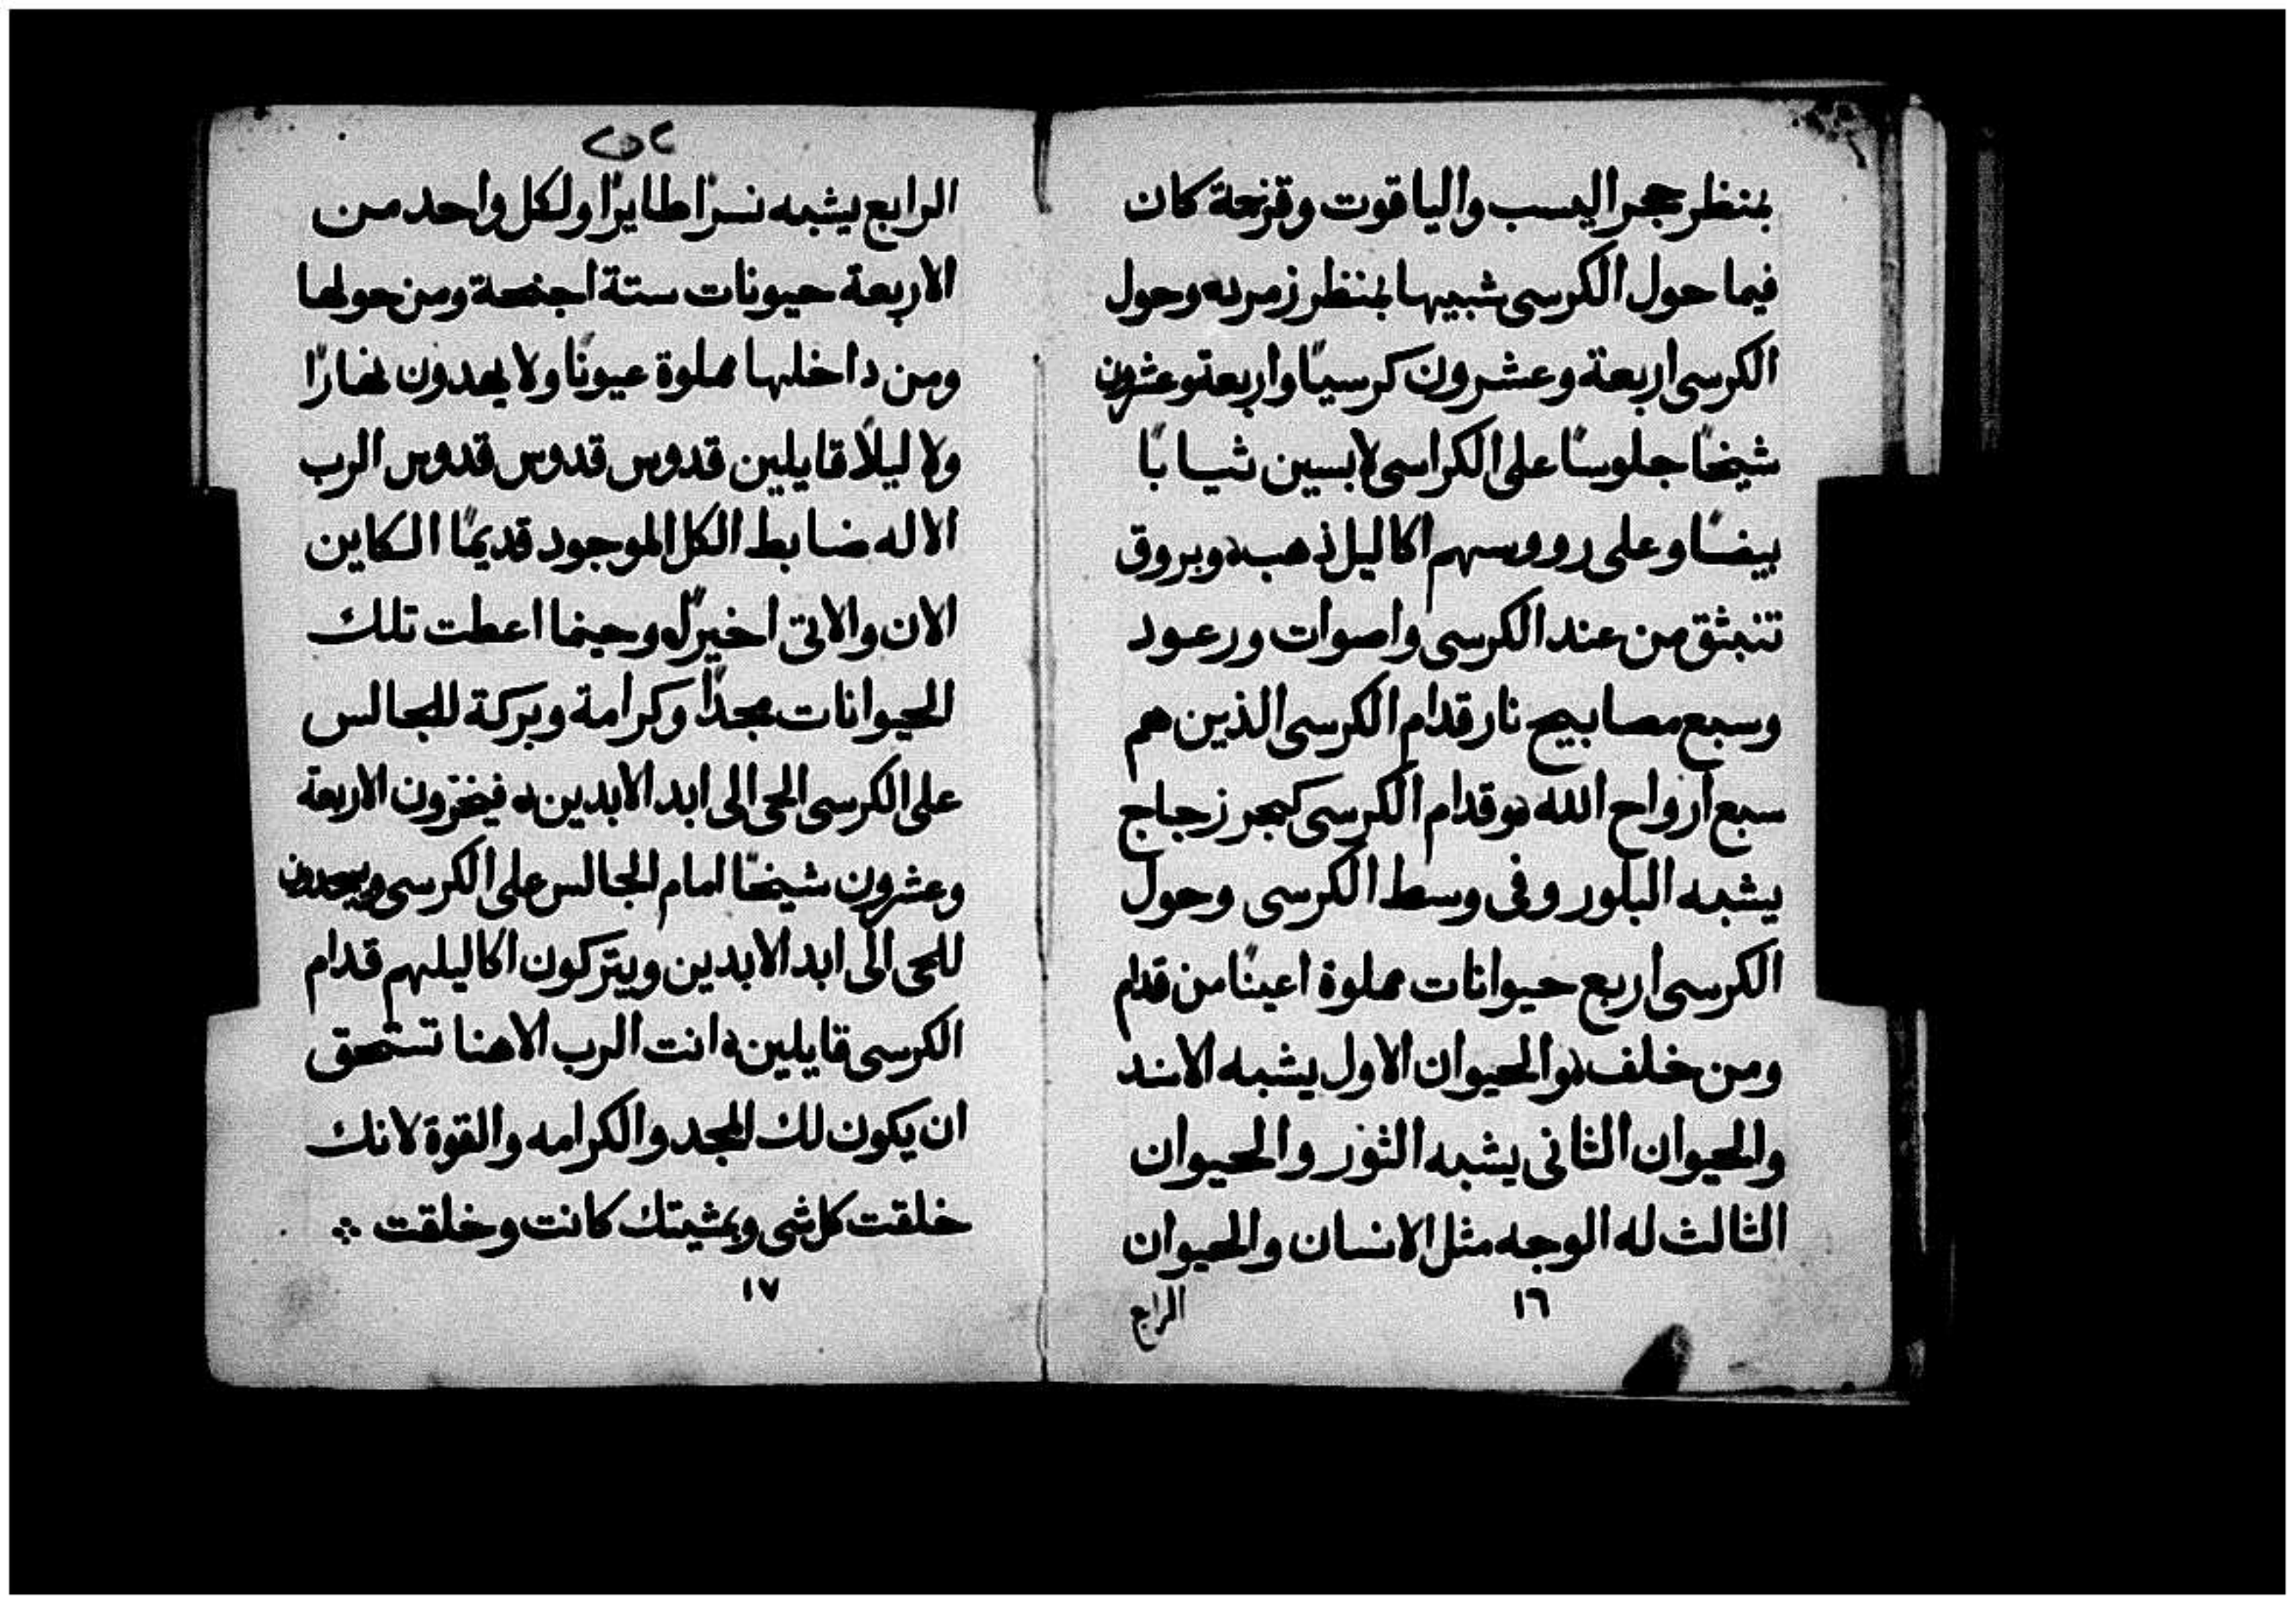 بمنظر حجر اليسب والياقوت وقزحة كان
فيما حول الكرسى شبيها بمنظر زمرده وحول
الكرسى اربعة وعشرون كرسيًا واربعة وعشرون
شيخًا جلوسًا على الكراسى لابسين ثيابًا
بيضًا وعلى رووسهم اكاليل ذهب وبروق
تنبثق من عند الكرسى واصوات ورعود
وسبع مصابيح نار قدام الكرسى الذين هم
سبع ارواح الله وقدام الكرسى كبحر زجاج
يشبه البلور وفى وسط الكرسى وحول
الكرسى اربع حيوانات مملوة اعينًا من قدام
ومن خلف والحيوان الاول يشبه الاسد
والحيوان الثانى يشبه الثور والحيوان
الثالث له الوجه مثل الانسان والحيوان
١٦
الرابع
الرابع يشبه نسرًا طايرًا ولكل واحد من
الاربعة حيونات ستة اجنحة ومن حولها
ومن داخلها مملوة عيونًا ولا يهدون نهارًا
ولا ليلًا قايلين قدوس قدوس قدوس الرب
الاله ضابط الكل الموجود قديمًا الكاين
الان والاتى اخيرًا وحينما اعطت تلك
الحيوانات مجدًا وكرامة وبركة للجالس
على الكرسى الحى الى ابد الابدين فيخرون الاربعة
وعشرون شيخًا امام الجالس على الكرسى ويسجدون
للحى الى ابد الابدين ويتركون اكاليلهم قدام
الكرسى قايلين انت الرب الاهنا تستحق
ان يكون لك المجد والكرامه والقوة لانك
خلقت كل شى وبمشيتك كانت وخلقت
١٧